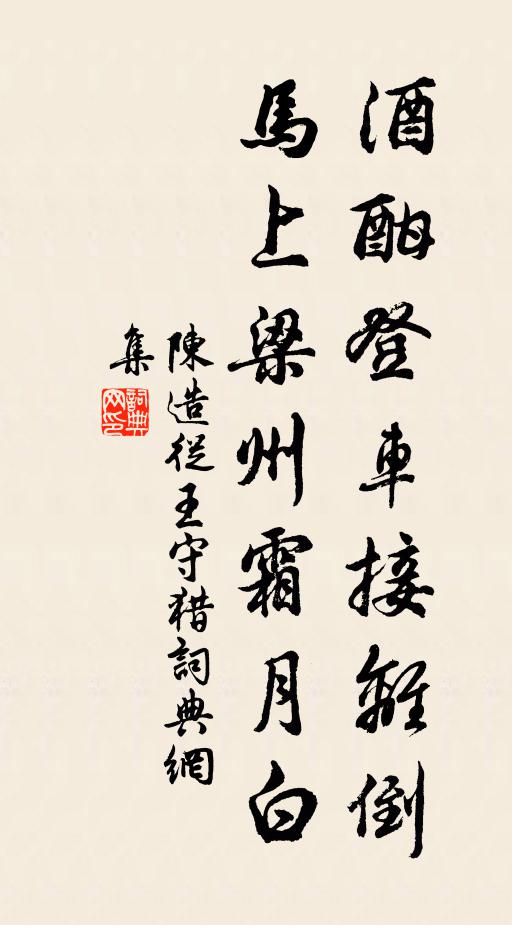 酒酣登車接離倒
馬上梁州霜月白
陳造從王守猎詞典網
集
詞典网印